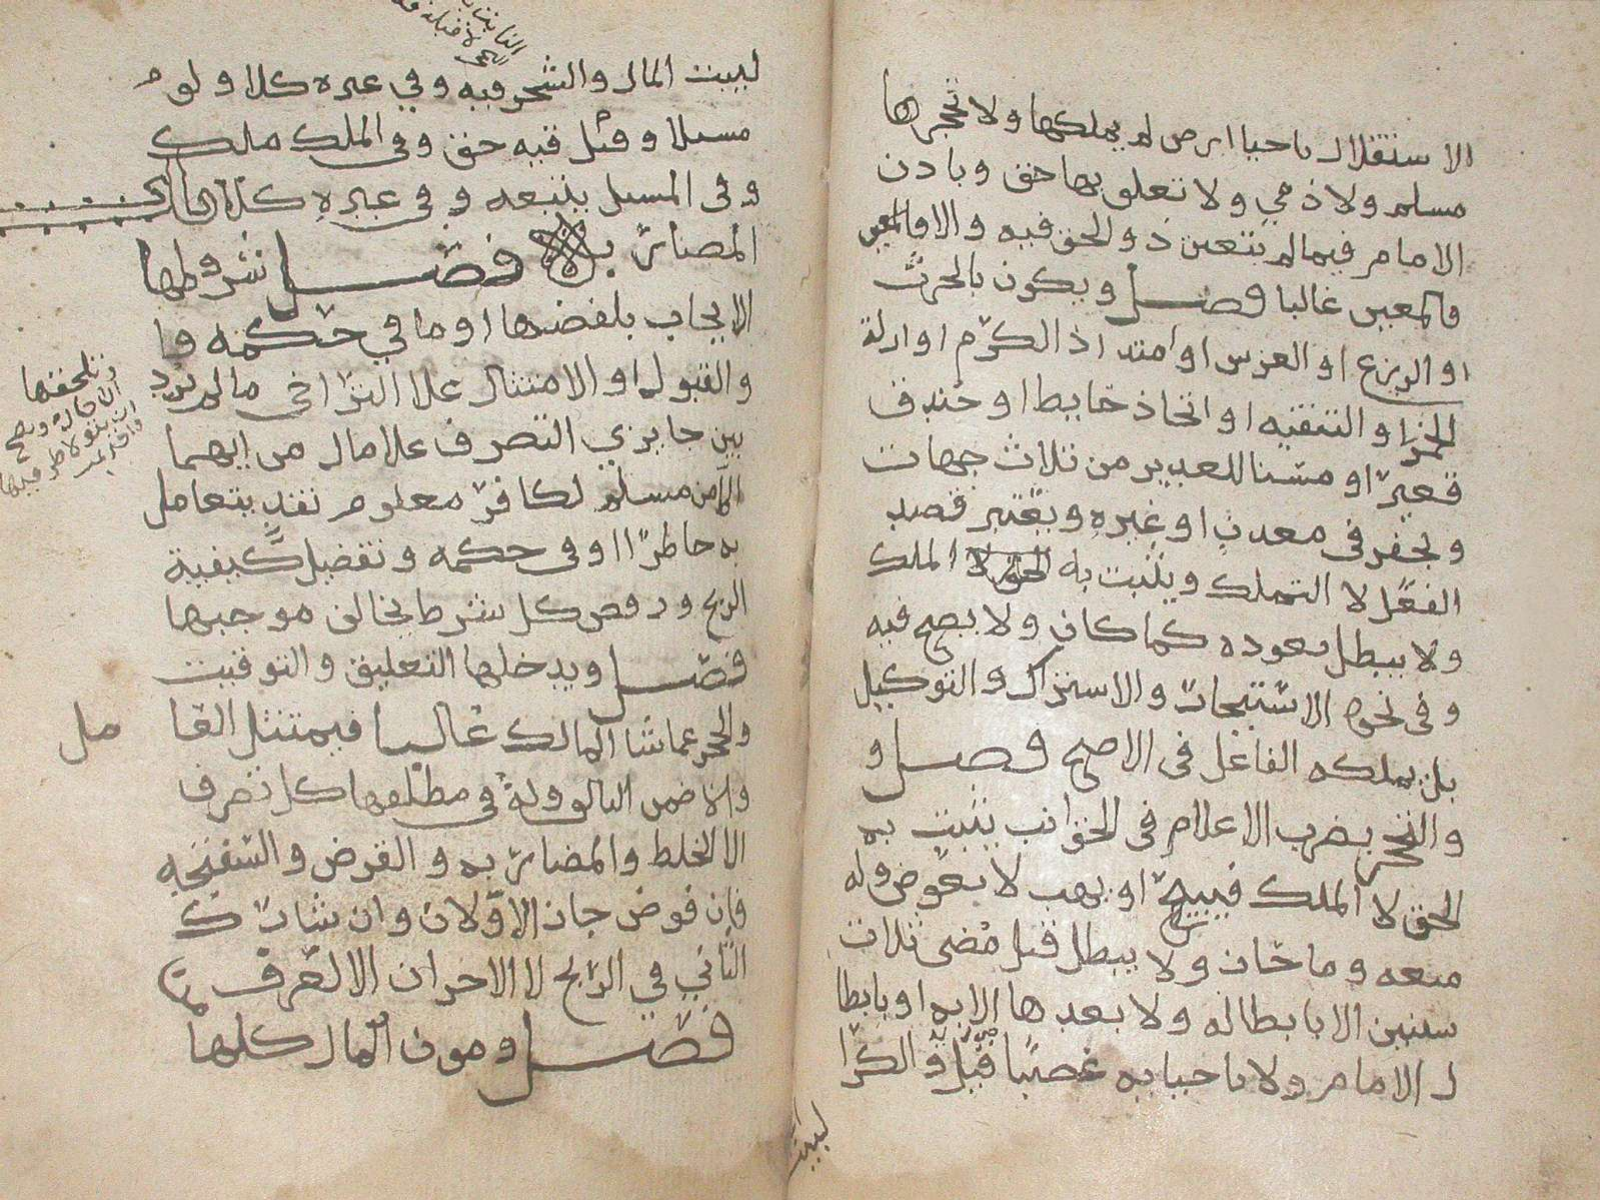 الاستقلال باحيا ارض لم يملكها ولا تحجرها
مسلم ولا ذمي ولا تعلق بها حق وبادن
الامام فيما لم يتعين ذو الحق فيه والا فالمعين
فالمعين غالبا فصل ويكون بالحرث
او الزرع او الغرس او امتداد الكرم او ازلة
الخمر او التنقيه او اتخاذ حايط او خندق
قعير او مسنا للغدير من ثلاث جهات
وبحفر في معدن او غيره ويعتبر قصد
الفعل لا التملك ويثبت به الملك
ولا يبطل بعوده كما كان ولا يصح فيه
وفي نحوه الاستيجار والاشتراك والتوكيل
بل يملكه الفاعل في الاصح فصل و
والتحجر بضرب الاعلام في الجوانب يثبت به
الحق لا الملك فيبيح او يهب لا بعوض وله
منعه وما حاز ولا يبطل قبل مضى ثلاث
سنين الا بابطاله ولا بعدها الا به او بابطا
ل الامام ولا باحيايه غصبا قيل والكرا
لبيت
لبيت المال والشجر فيه وفي غيره كلا ولو م
مسبلا وقيل فيه حق وفي الملك ملك
وفي المسبل يتبعه وفي غيره كلا
المضاربه فصل شروطها
الايجاب بلفضها او ما في حكمه وا
والقبول او الامتثال علا التراخي مالم يرد
بين جايزي التصرف علا مال من ايهما
الا من مسلم لكافر معلوم نقد يتعامل
به حاظر او في حكمه وتفضيل كيفية
الربح ورفض كل شرط يخالف موجبها
فصل ويدخلها التعليق والتوقيت
والحجر عما شا المالك غالبا فيمتثل العا مل
والا ضمن التالف وله في مطلقها كل تصرف
الا الخلط والمضاربه والقرض والسفتجه
فان فوض جاز الاولان وان شارك
الثاني في الربح لا الاخران الا لعرف
فصل ومون المال كلها